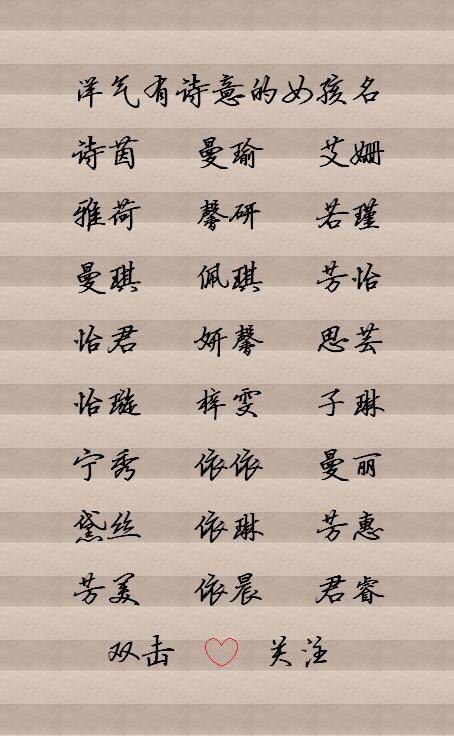 洋气有诗意的女孩名
诗茵 曼瑜 艾姗
雅荷 馨研 若瑾
曼琪 佩琪 芳怡
怡君 妍馨 思芸
怡璇 梓雯 子琳
宁秀 依依 曼丽
黛丝 依琳 芳惠
芳美 依晨 君睿
双击 关注